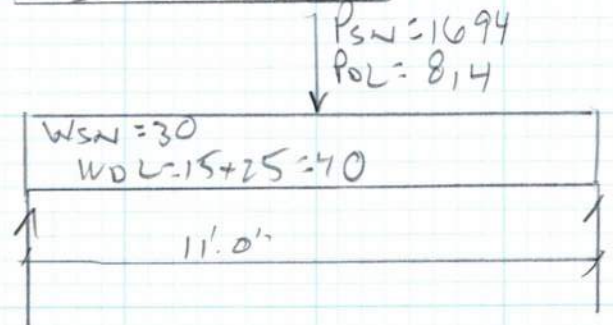 PSN=1694
PDL=814
WSN=30
WDL=15+25=40
11'.0"